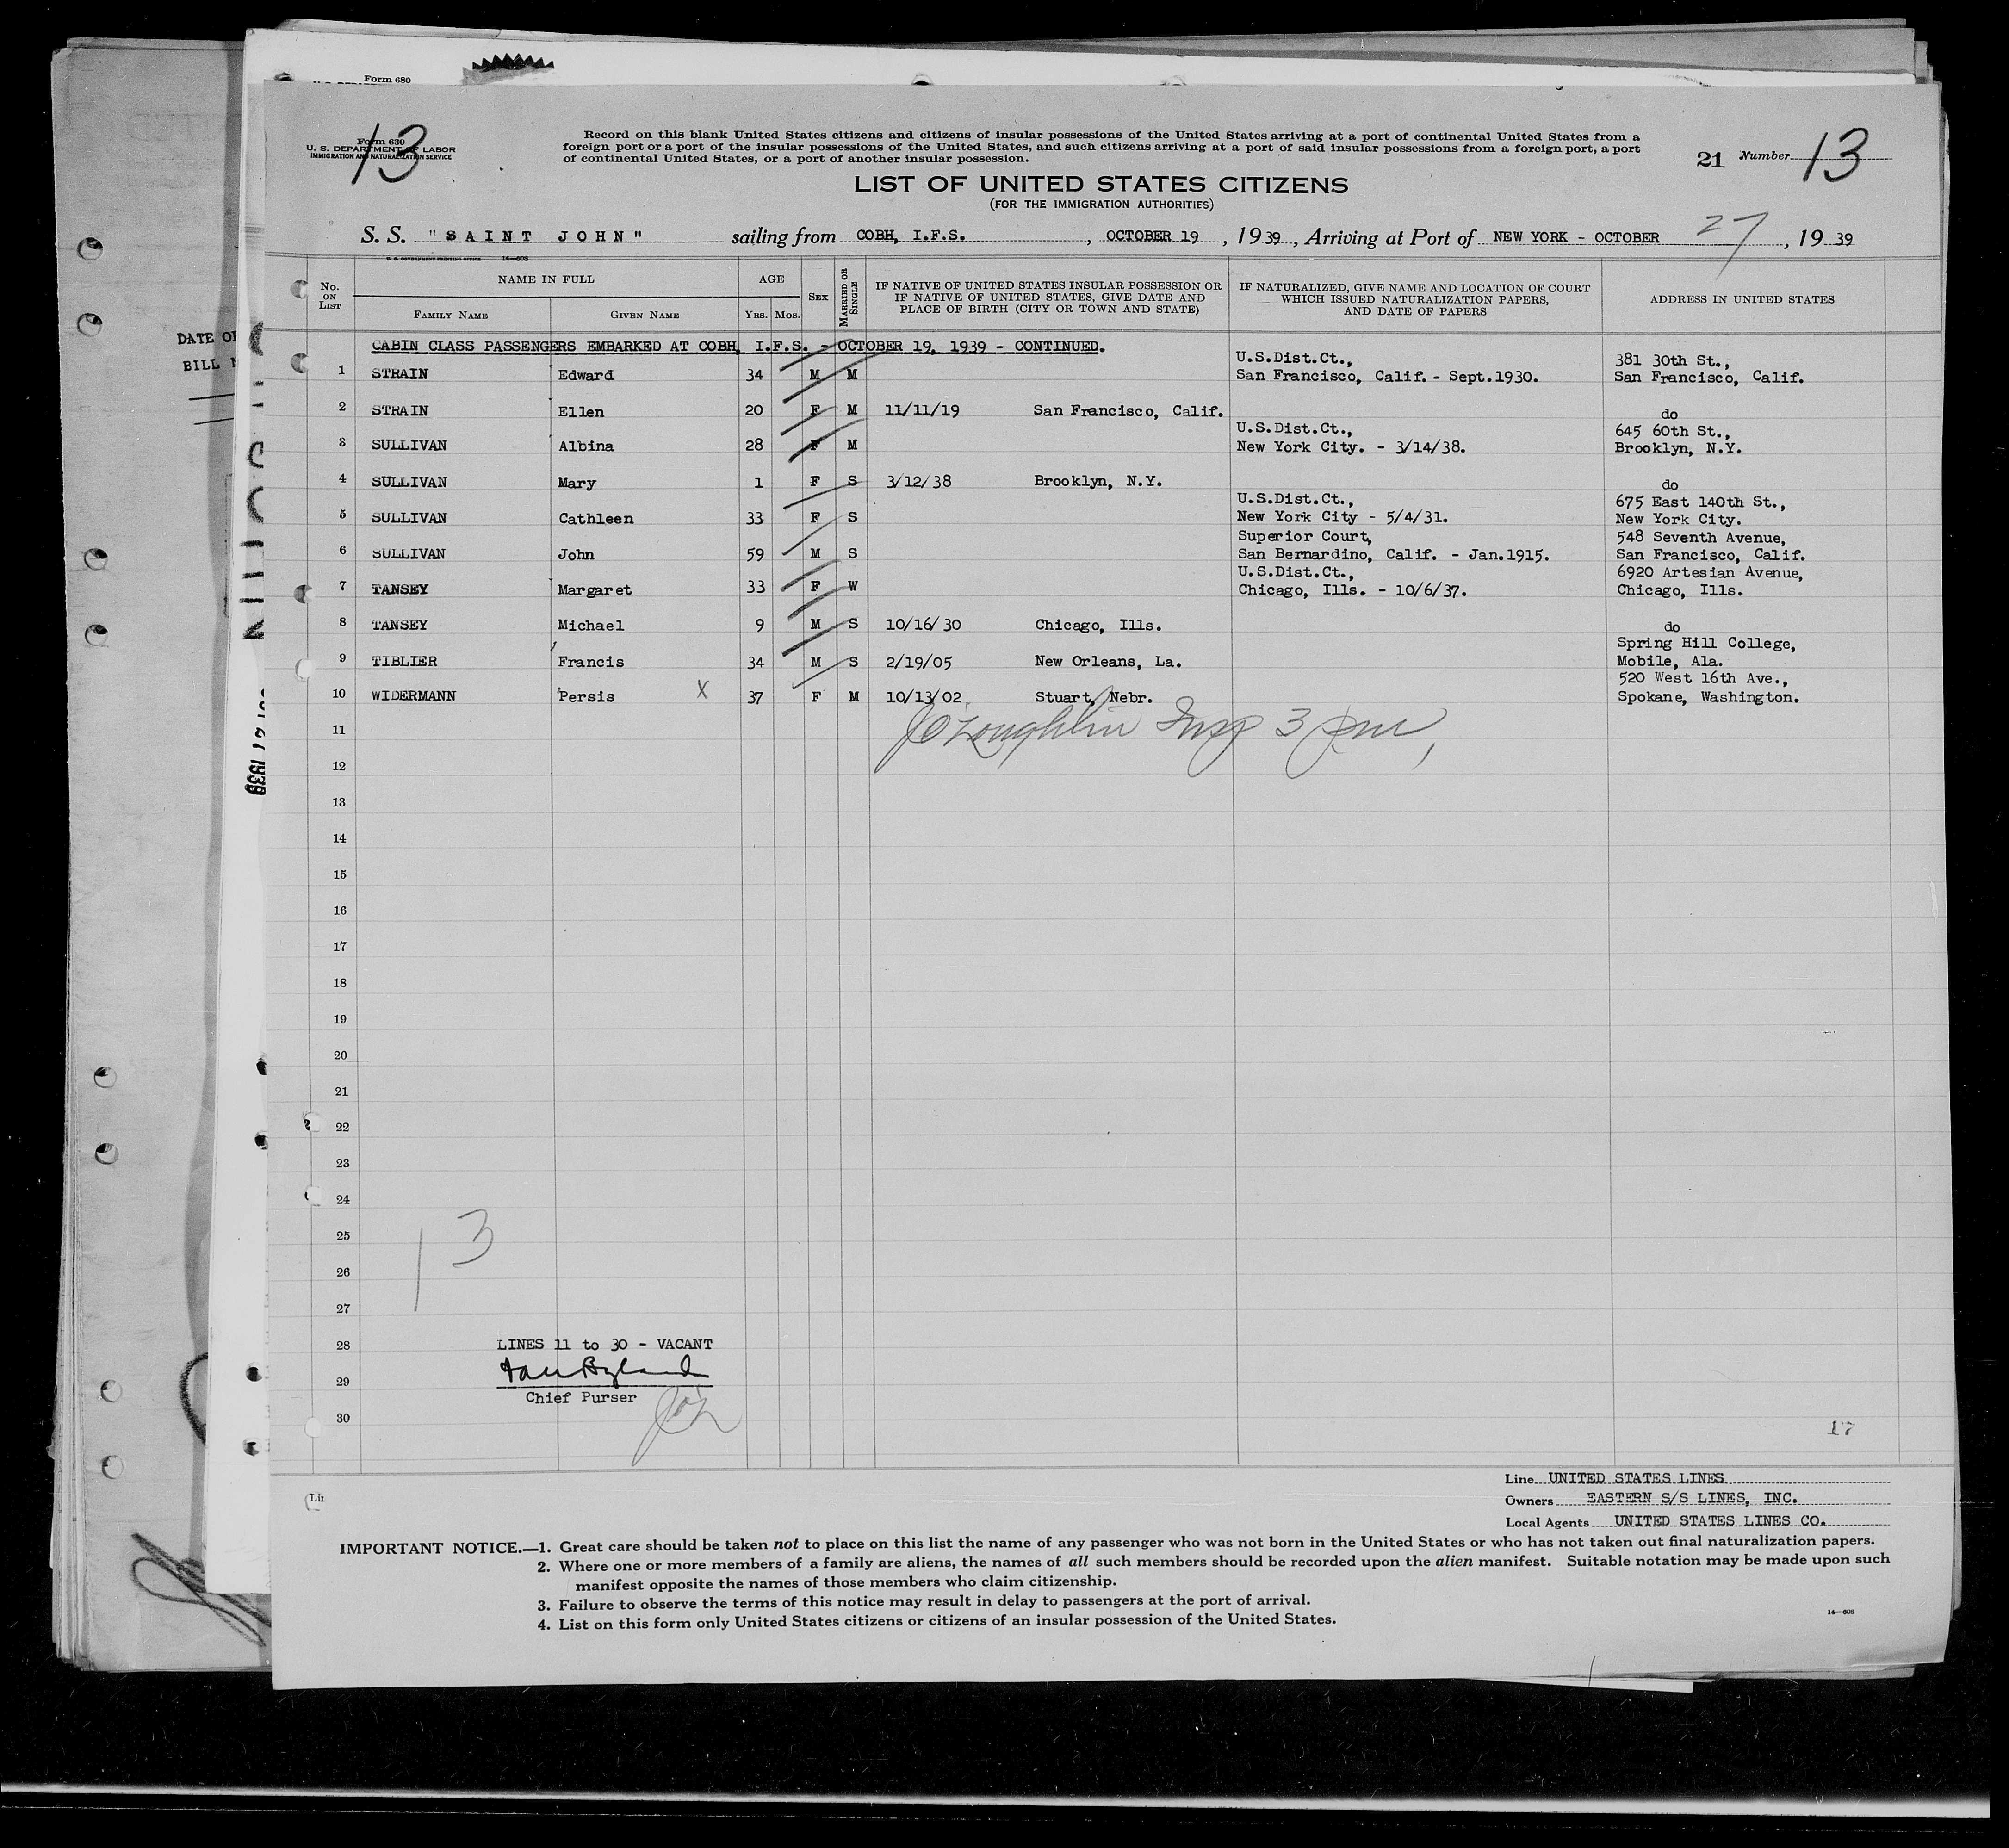 Form 680
DATE OF
BILL
Form 630
U. S. DEPARTMENT OF LABOR
IMMIGRATION AND NATURALIZATION SERVICE
13
Record on this blank United States citizens and citizens of insular possessions of the United States arriving at a port of continental United States from a
foreign port or a port of the insular possessions of the United States, and such citizens arriving at a port of said insular possessions from a foreign port, a port
of continental United States, or a port of another insular possession.
21 Number 13
LIST OF UNITED STATES CITIZENS
(FOR THE IMMIGRATION AUTHORITIES)
S. S. "SAINT JOHN" sailing from COBH, I.F.S. , OCTOBER 19 , 1939 , Arriving at Port of NEW YORK - OCTOBER 27 , 1939
U. S. GOVERNMENT PRINTING OFFICE 14—608
No. ON LIST
NAME IN FULL
FAMILY NAME GIVEN NAME
AGE
YRS. MOS.
SEX
MARRIED OR SINGLE
IF NATIVE OF UNITED STATES INSULAR POSSESSION OR
IF NATIVE OF UNITED STATES, GIVE DATE AND
PLACE OF BIRTH (CITY OR TOWN AND STATE)
IF NATURALIZED, GIVE NAME AND LOCATION OF COURT
WHICH ISSUED NATURALIZATION PAPERS,
AND DATE OF PAPERS
ADDRESS IN UNITED STATES
CABIN CLASS PASSENGERS EMBARKED AT COBH, I.F.S. - OCTOBER 19, 1939 - CONTINUED.
U.S.Dist.Ct., 381 30th St.,
1 STRAIN Edward 34 M M San Francisco, Calif. - Sept.1930. San Francisco, Calif.
2 STRAIN Ellen 20 F M 11/11/19 San Francisco, Calif. do
U.S.Dist.Ct., 645 60th St.,
3 SULLIVAN Albina 28 F M New York City. - 3/14/38. Brooklyn, N.Y.
4 SULLIVAN Mary 1 F S 3/12/38 Brooklyn, N.Y. do
U.S.Dist.Ct., 675 East 140th St.,
5 SULLIVAN Cathleen 33 F S New York City - 5/4/31. New York City.
Superior Court, 548 Seventh Avenue,
6 SULLIVAN John 59 M S San Bernardino, Calif. - Jan.1915. San Francisco, Calif.
U.S.Dist.Ct., 6920 Artesian Avenue,
7 TANSEY Margaret 33 F W Chicago, Ills. - 10/6/37. Chicago, Ills.
8 TANSEY Michael 9 M S 10/16/30 Chicago, Ills. do
Spring Hill College,
9 TIBLIER Francis 34 M S 2/19/05 New Orleans, La. Mobile, Ala.
520 West 16th Ave.,
10 WIDERMANN Persis X 37 F M 10/13/02 Stuart, Nebr. Spokane, Washington.
JO'Loughlin Insp 3 pm,
11
12
13
14
15
16
17
18
19
20
21
22
23
24
25
26
27
13
28 LINES 11 to 30 - VACANT
29
Chief Purser
30
17
Line UNITED STATES LINES
Owners EASTERN S/S LINES, INC.
Local Agents UNITED STATES LINES CO.
IMPORTANT NOTICE.—1. Great care should be taken not to place on this list the name of any passenger who was not born in the United States or who has not taken out final naturalization papers.
2. Where one or more members of a family are aliens, the names of all such members should be recorded upon the alien manifest. Suitable notation may be made upon such
manifest opposite the names of those members who claim citizenship.
3. Failure to observe the terms of this notice may result in delay to passengers at the port of arrival.
4. List on this form only United States citizens or citizens of an insular possession of the United States.
14—608